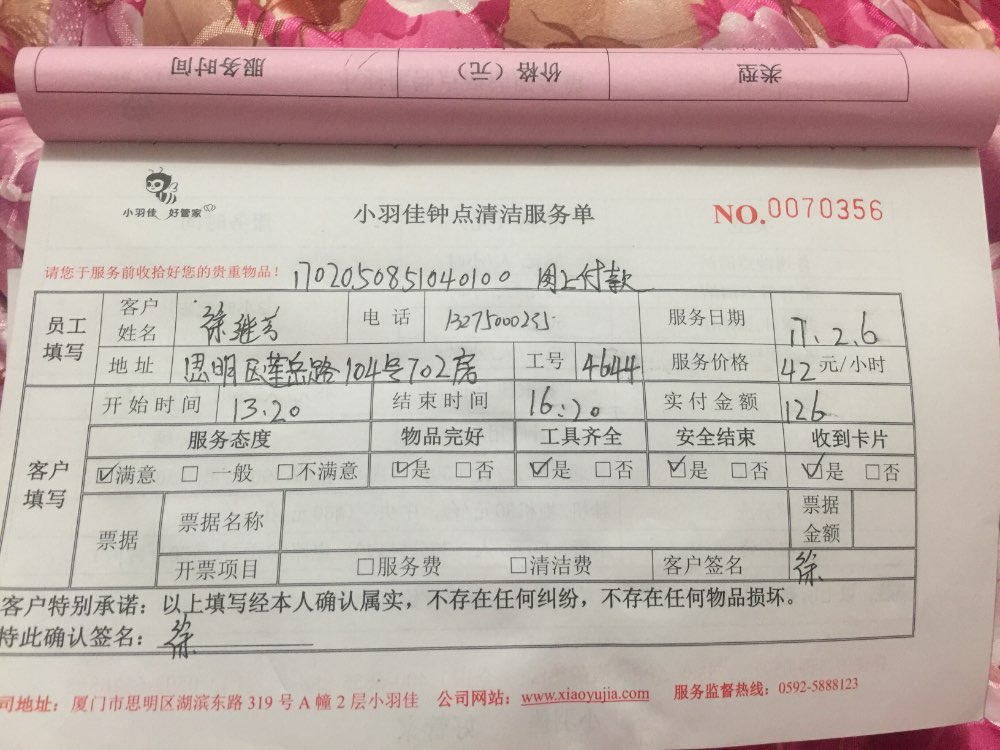 服务时间 价格（元） 类型
小羽佳 好管家
小羽佳钟点清洁服务单
NO.0070356
请您于服务前收拾好您的贵重物品！
1702050851040100 网上付款
员工填写 客户姓名 徐继芳 电话 13275000235 服务日期 17.2.6
地址 思明区莲岳路104号702房 工号 4644 服务价格 42元/小时
客户填写 开始时间 13:20 结束时间 16:20 实付金额 126
服务态度 物品完好 工具齐全 安全结束 收到卡片
☑满意 □一般 □不满意 ☑是 □否 ☑是 □否 ☑是 □否 ☑是 □否
票据 票据名称 票据金额
开票项目 □服务费 □清洁费 客户签名 徐
客户特别承诺：以上填写经本人确认属实，不存在任何纠纷，不存在任何物品损坏。
特此确认签名：徐
司地址：厦门市思明区湖滨东路319号A幢2层小羽佳 公司网站：www.xiaoyujia.com 服务监督热线：0592-5888123